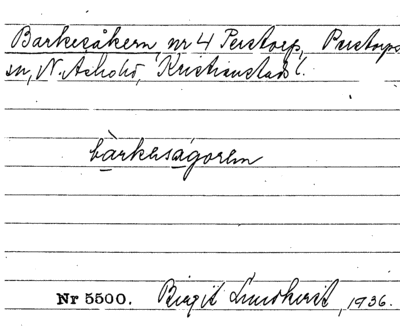 Barkesåkern, nr 4 Perstorp, Perstorps
sn, N. Åsbo hd, Kristianstads l.
bàrkəsågorən
Nr 5500. Birgit Lundkvist, 1936.